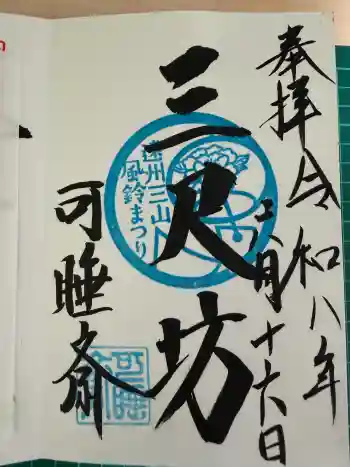 奉拝
令和八年
八月十六日
三尺坊
遠州三山
風鈴まつり
可睡斎